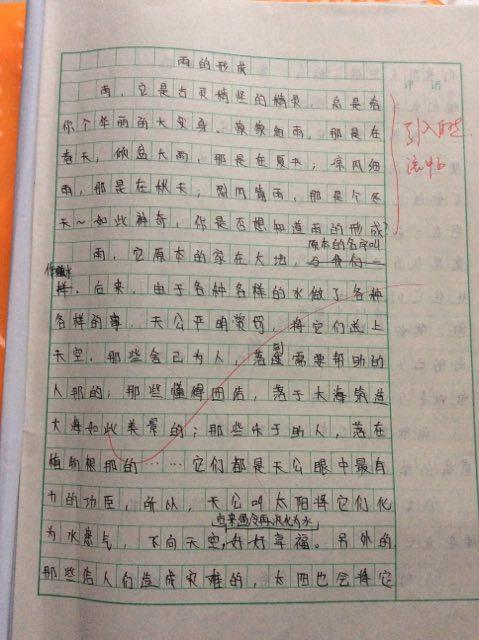 雨的形成
评语
雨，它是古灵精怪的精灵，总是有
你个年丽的大变身。蒙蒙细雨，那是在
春天；倾盆大雨，那是在夏季；凉风细
雨，那是在秋天；烈风寒雨，那是个冬
天～如此神奇，你是否想知道雨的形成？
引入自然
流畅
原本的名字叫
雨，它原本的家在大地，与我们一
样，后来，由于各种各样的水做了各种
各样的事，天公平明赏罚，将它们送上
天空，那些舍己为人，落到需要帮助的
人那的；那些懂得团结，落于大海筑造
大海如此美景的；那些乐于助人，落在
植物根那的……它们都是天公眼中最有
力的功臣，所以，天公叫太阳将它们化
后来遇冷再次化为水
为水蒸气，飞向天空，好好享福。另外的
那些给人们造成灾难的，太阳也会将它